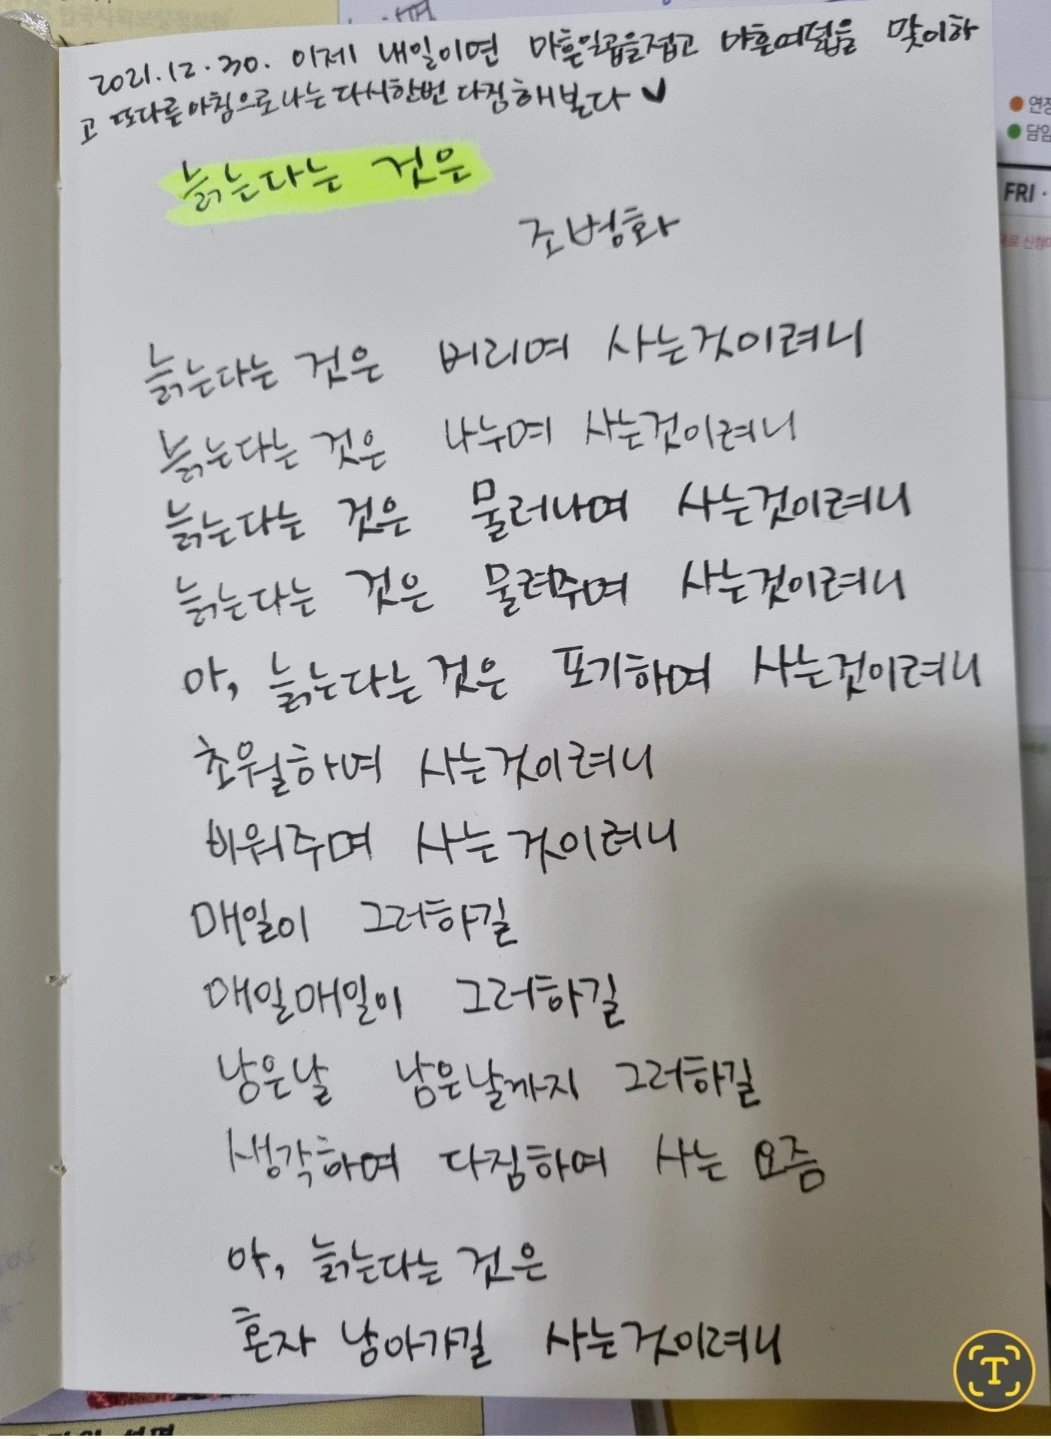 2021.12.30. 이제 내일이면 마흔일곱을접고 마흔여덟을 맞이하
고 또다른아침으로나는다시한번다짐해본다
늙는다는 것은
조병화
늙는다는 것은 버리며 사는것이려니
늙는다는 것은 나누며 사는것이려니
늙는다는 것은 물러나며 사는것이려니
늙는다는 것은 물려주며 사는것이려니
아, 늙는다는 것은 포기하며 사는것이려니
초월하며 사는것이려니
비워주며 사는것이려니
매일이 그러하길
매일매일이 그러하길
남은날 남은날까지 그러하길
생각하며 다짐하며 사는 요즘
아, 늙는다는 것은
혼자 남아가길 사는것이려니
FRI